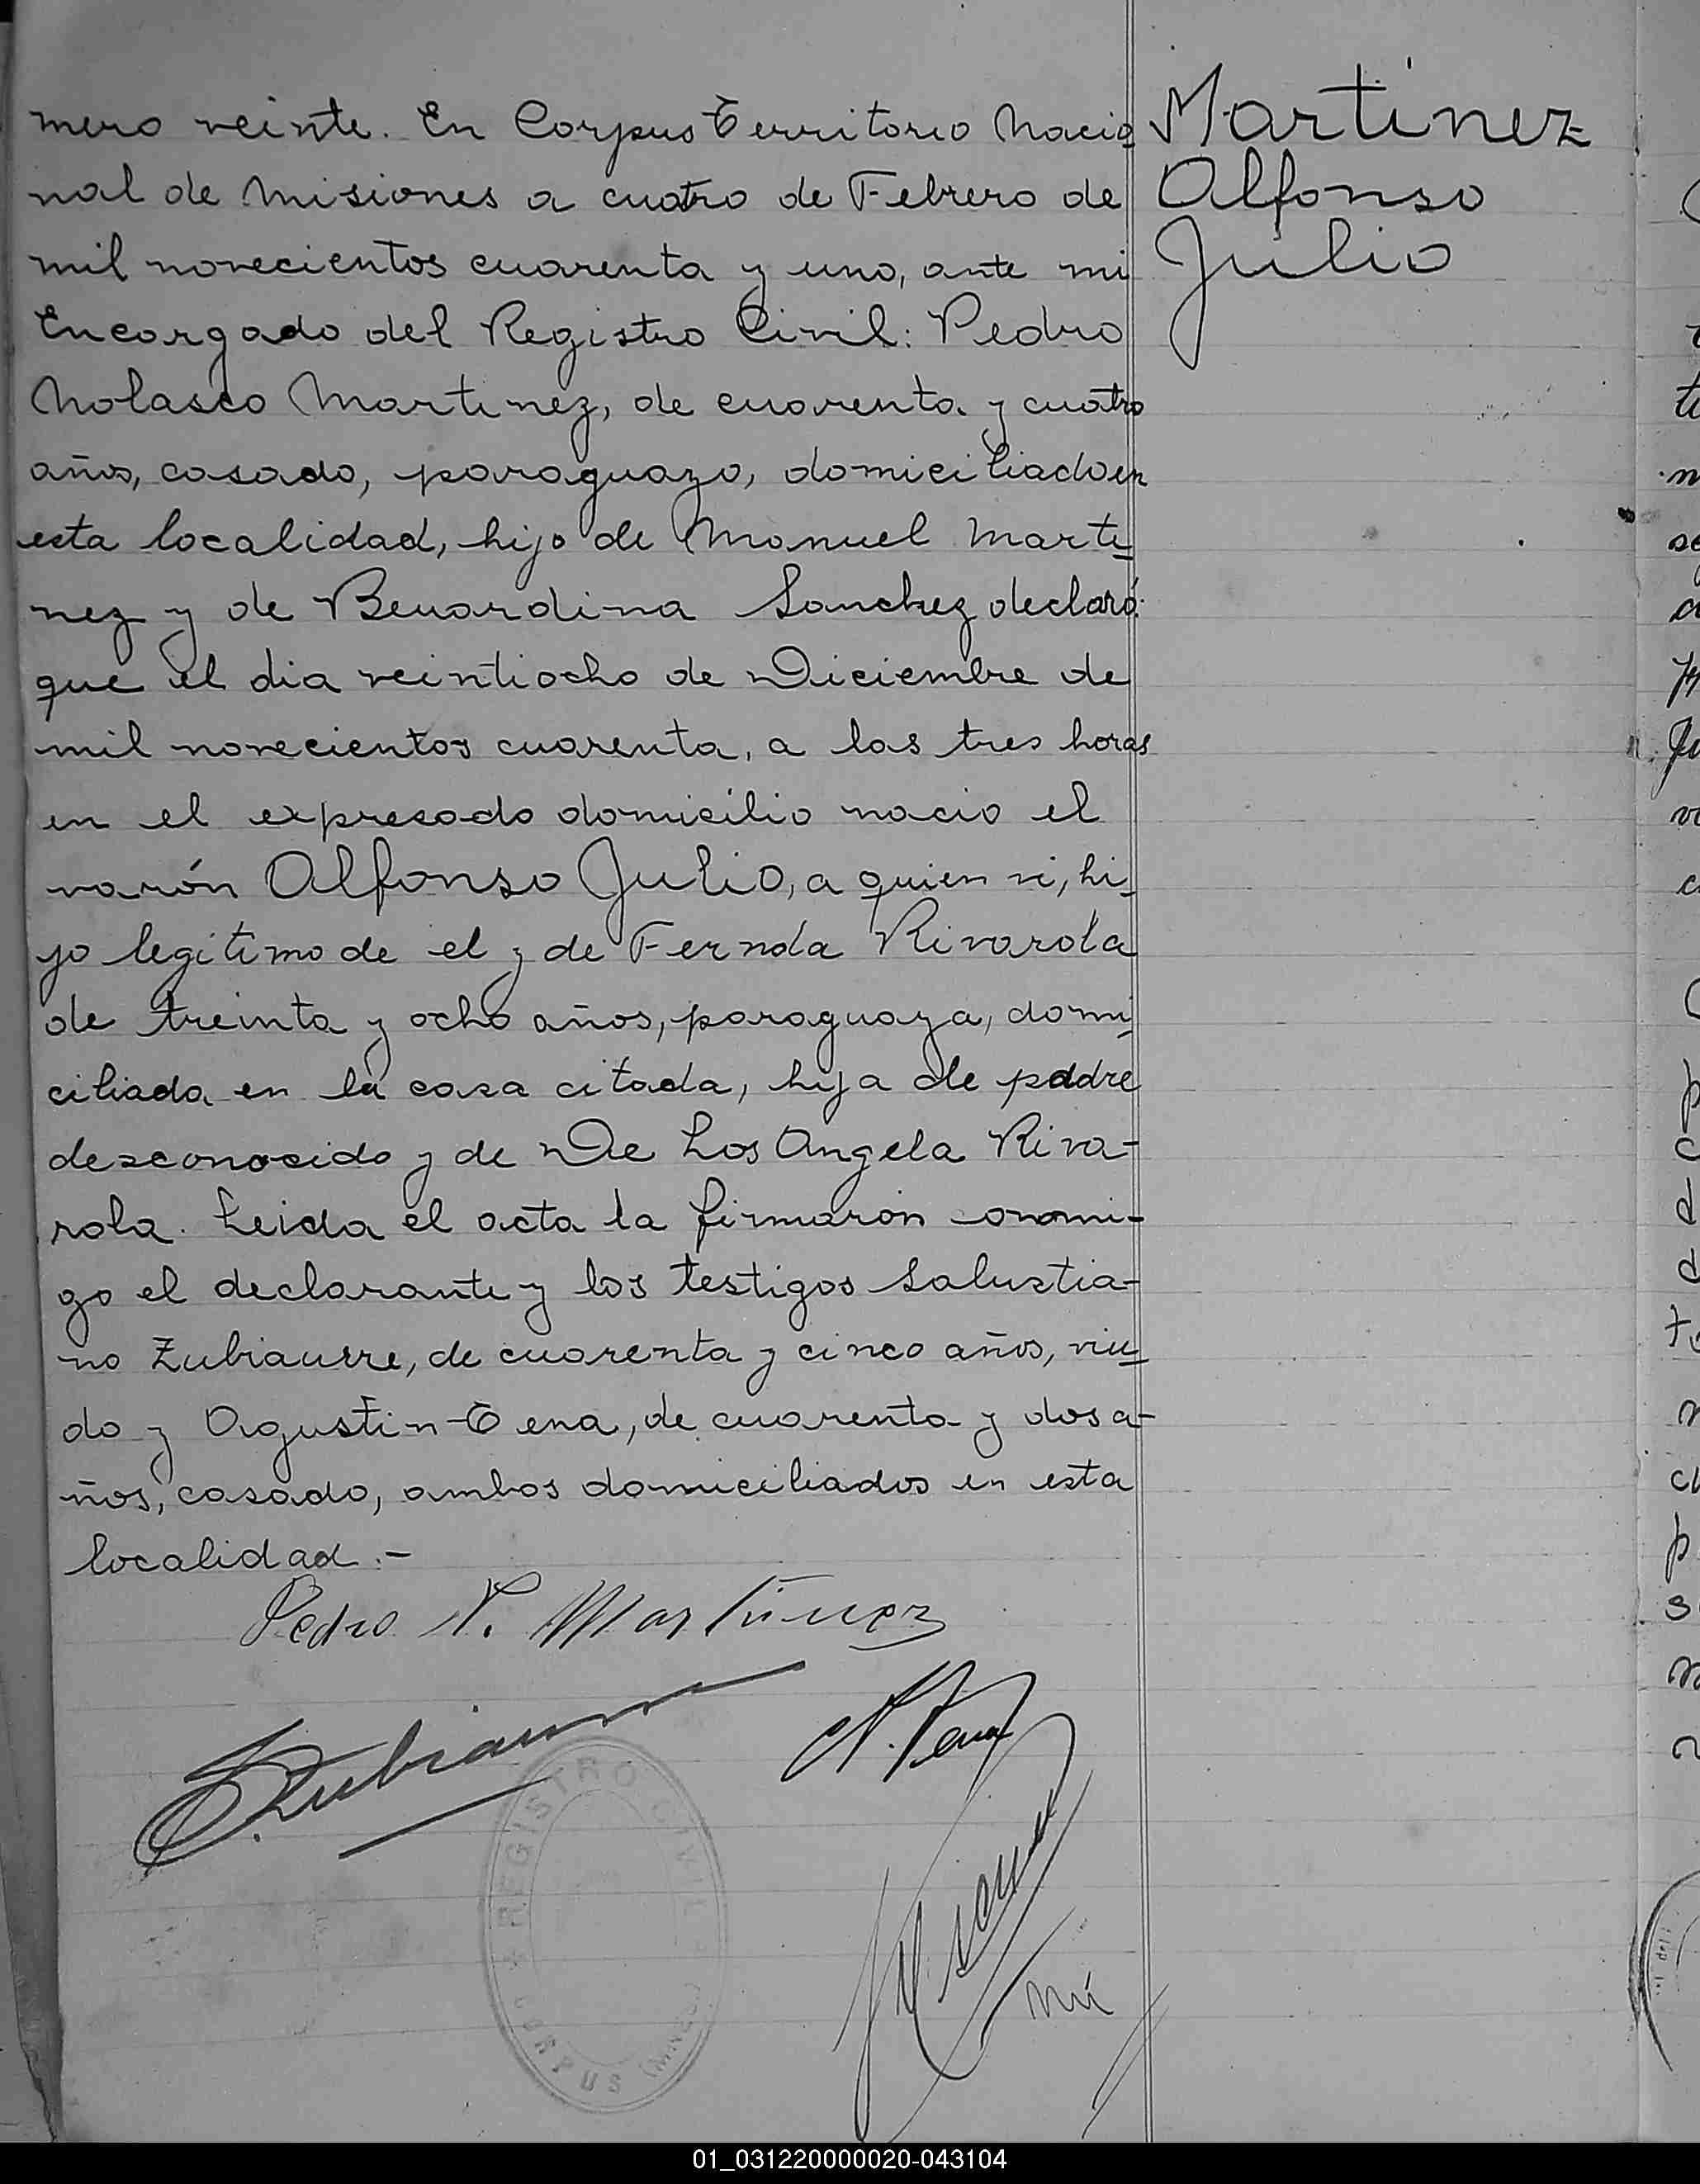 mero veinte. En Corpus Territorio Nacio
nal de Misiones a cuatro de Febrero de
mil novecientos cuarenta y uno, ante mi
Encargado del Registro Civil: Pedro
Nolasco Martinez, de cuarenta y cuatro
años, casado, paraguayo, domiciliado en
esta localidad, hijo de Manuel Marti
nez y de Benardina Sanchez declaró:
que el dia veintiocho de Diciembre de
mil novecientos cuarenta, a las tres horas
en el expresado domicilio nacio el
varón Alfonso Julio, a quien vi, hi
jo legitimo de el y de Fernda Rivarola
de treinta y ocho años, paraguaya, domi
ciliada en la casa citada, hija de padre
desconocido y de De Los Angela Riva-
rola. Leida el acta la firmaron conmi-
go el declarante y los testigos Salustia-
no Zubiaurre, de cuarenta y cinco años, viu
do y Agustin Tena, de cuarenta y dos a-
ños, casado, ambos domiciliados en esta
localidad.-
Martinez
Alfonso
Julio
Pedro N. Martinez
REGISTRO CIVIL
CORPUS (MNES.)
01_031220000020-043104